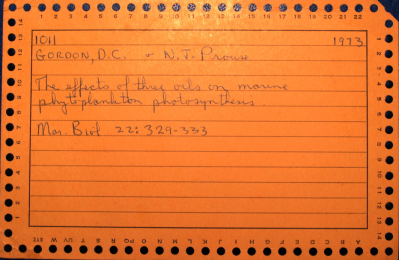 1 2 3 4 5 6 7 8 9 10 11 12 13 14 15 16 17 18 19 20 21 22
1011 1973
GORDON, D.C. & N.J. Prouse
The effects of three oils on marine
phytoplankton photosynthesis.
Mar. Biol 22: 329-333